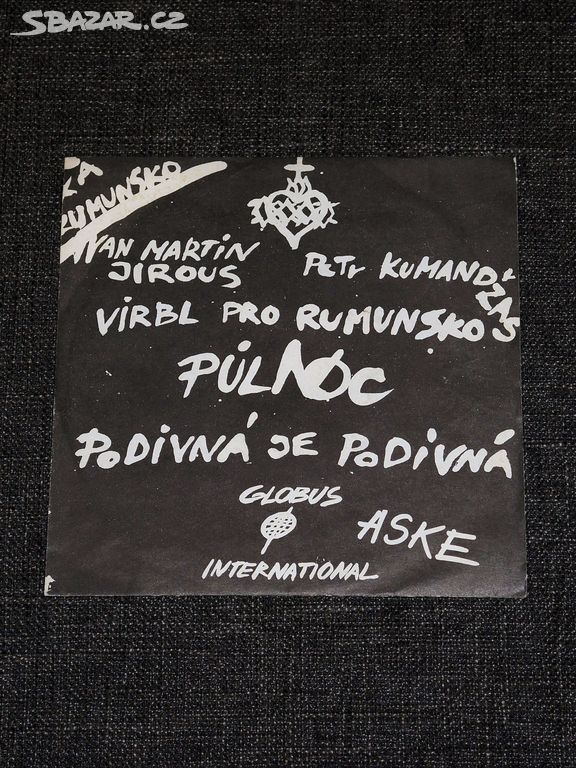 SBAZAR.CZ
RUMUNSKO
IVAN MARTIN
JIROUS
PETR KUMANDŽAS
VIRBL PRO RUMUNSKO
PŮLNOC
PODIVNÁ JE PODIVNÁ
GLOBUS
INTERNATIONAL
ASKE